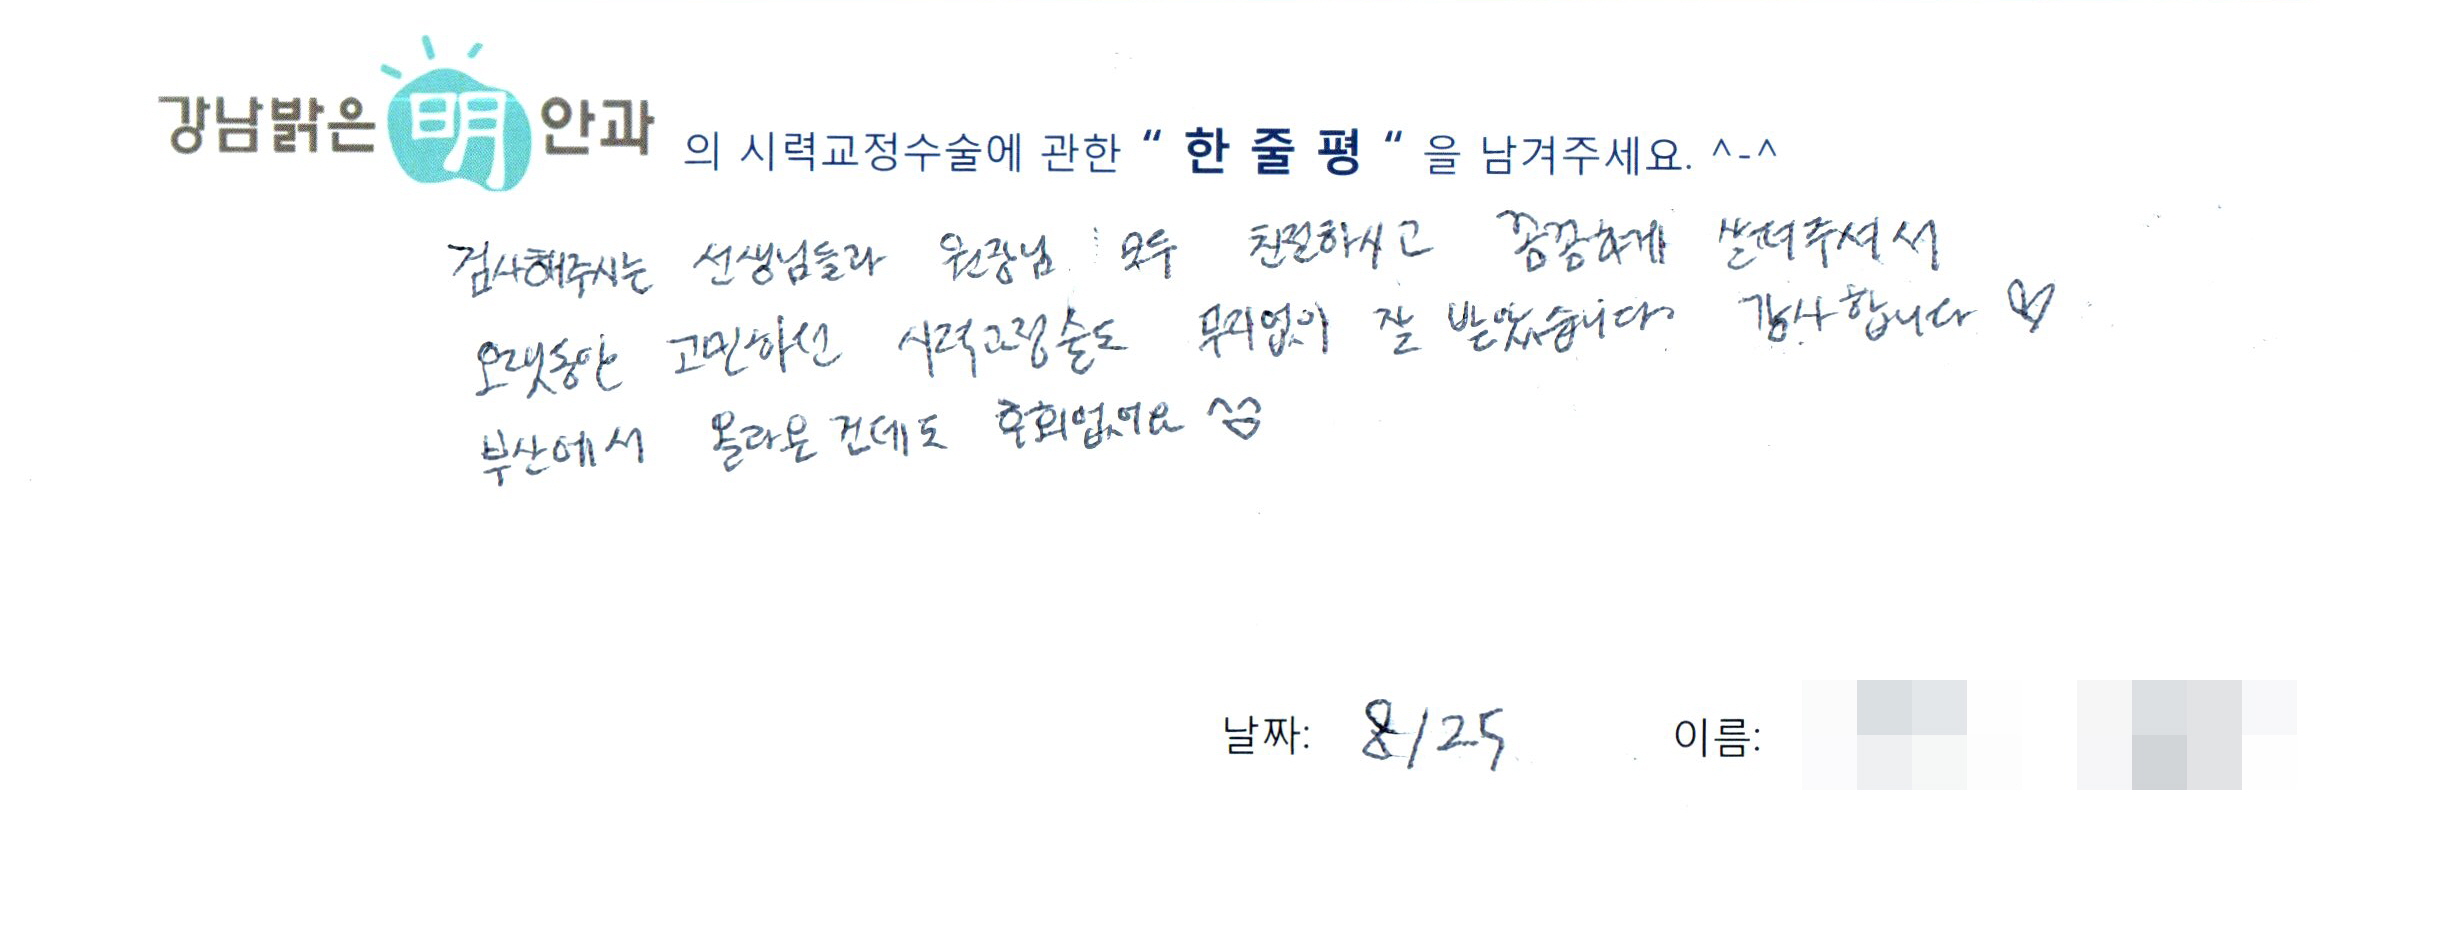 강남밝은 明 안과 의 시력교정수술에 관한 “ 한 줄 평 “ 을 남겨주세요. ^-^
검사해주시는 선생님들과 원장님 모두 친절하시고 꼼꼼하게 살펴주셔서
오랫동안 고민하던 시력교정술도 무리없이 잘 받았습니다. 감사합니다 ♡
부산에서 올라온건데도 후회없어요 ^^
날짜: 8/25 이름: